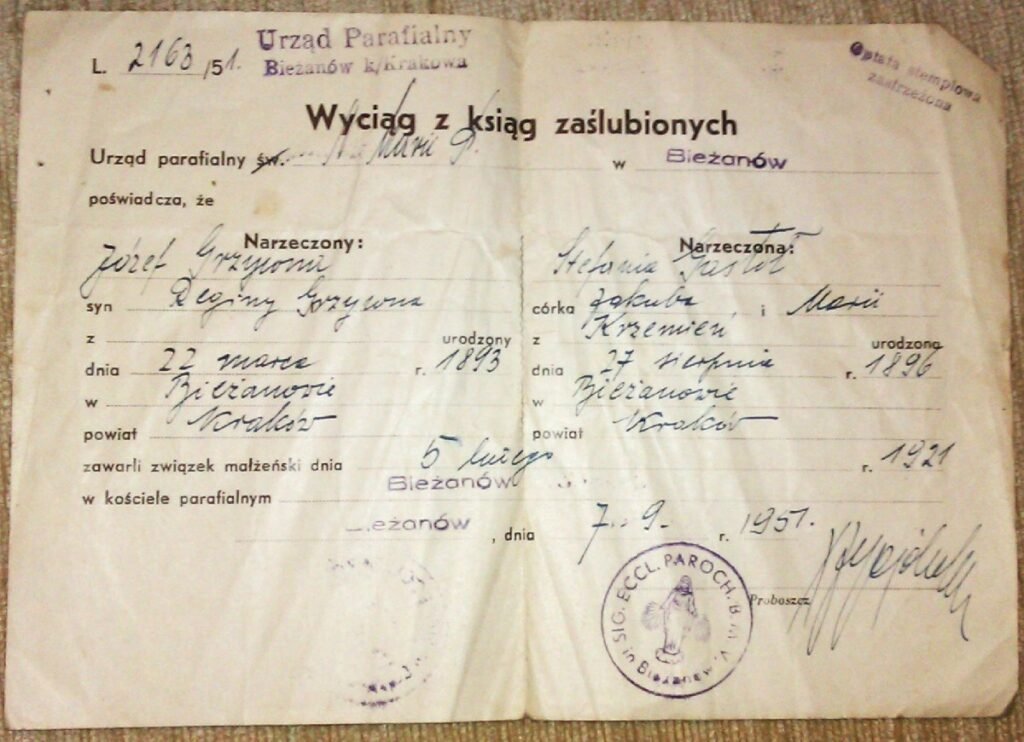 Urząd Parafialny
L. 2163/51.
Bieżanów k/Krakowa
Opłata stemplowa
zastrzeżona
Wyciąg z ksiąg zaślubionych
Urząd parafialny św. N. Marii P. w Bieżanów
poświadcza, że
Narzeczony: Narzeczona:
Józef Grzywna Stefania Gastoł
syn Reginy Grzywna córka Jakuba i Marii
z urodzony z Krzemień urodzona
dnia 22 marca r. 1893 dnia 27 sierpnia r. 1896
w Bieżanowie w Bieżanowie
powiat Kraków powiat Kraków
zawarli związek małżeński dnia 5 lutego r. 1921
w kościele parafialnym Bieżanów
Bieżanów, dnia 7. 9. r. 1951.
Proboszcz
SIG. ECCL. PAROCH. B. M. V.
in Bieżanów